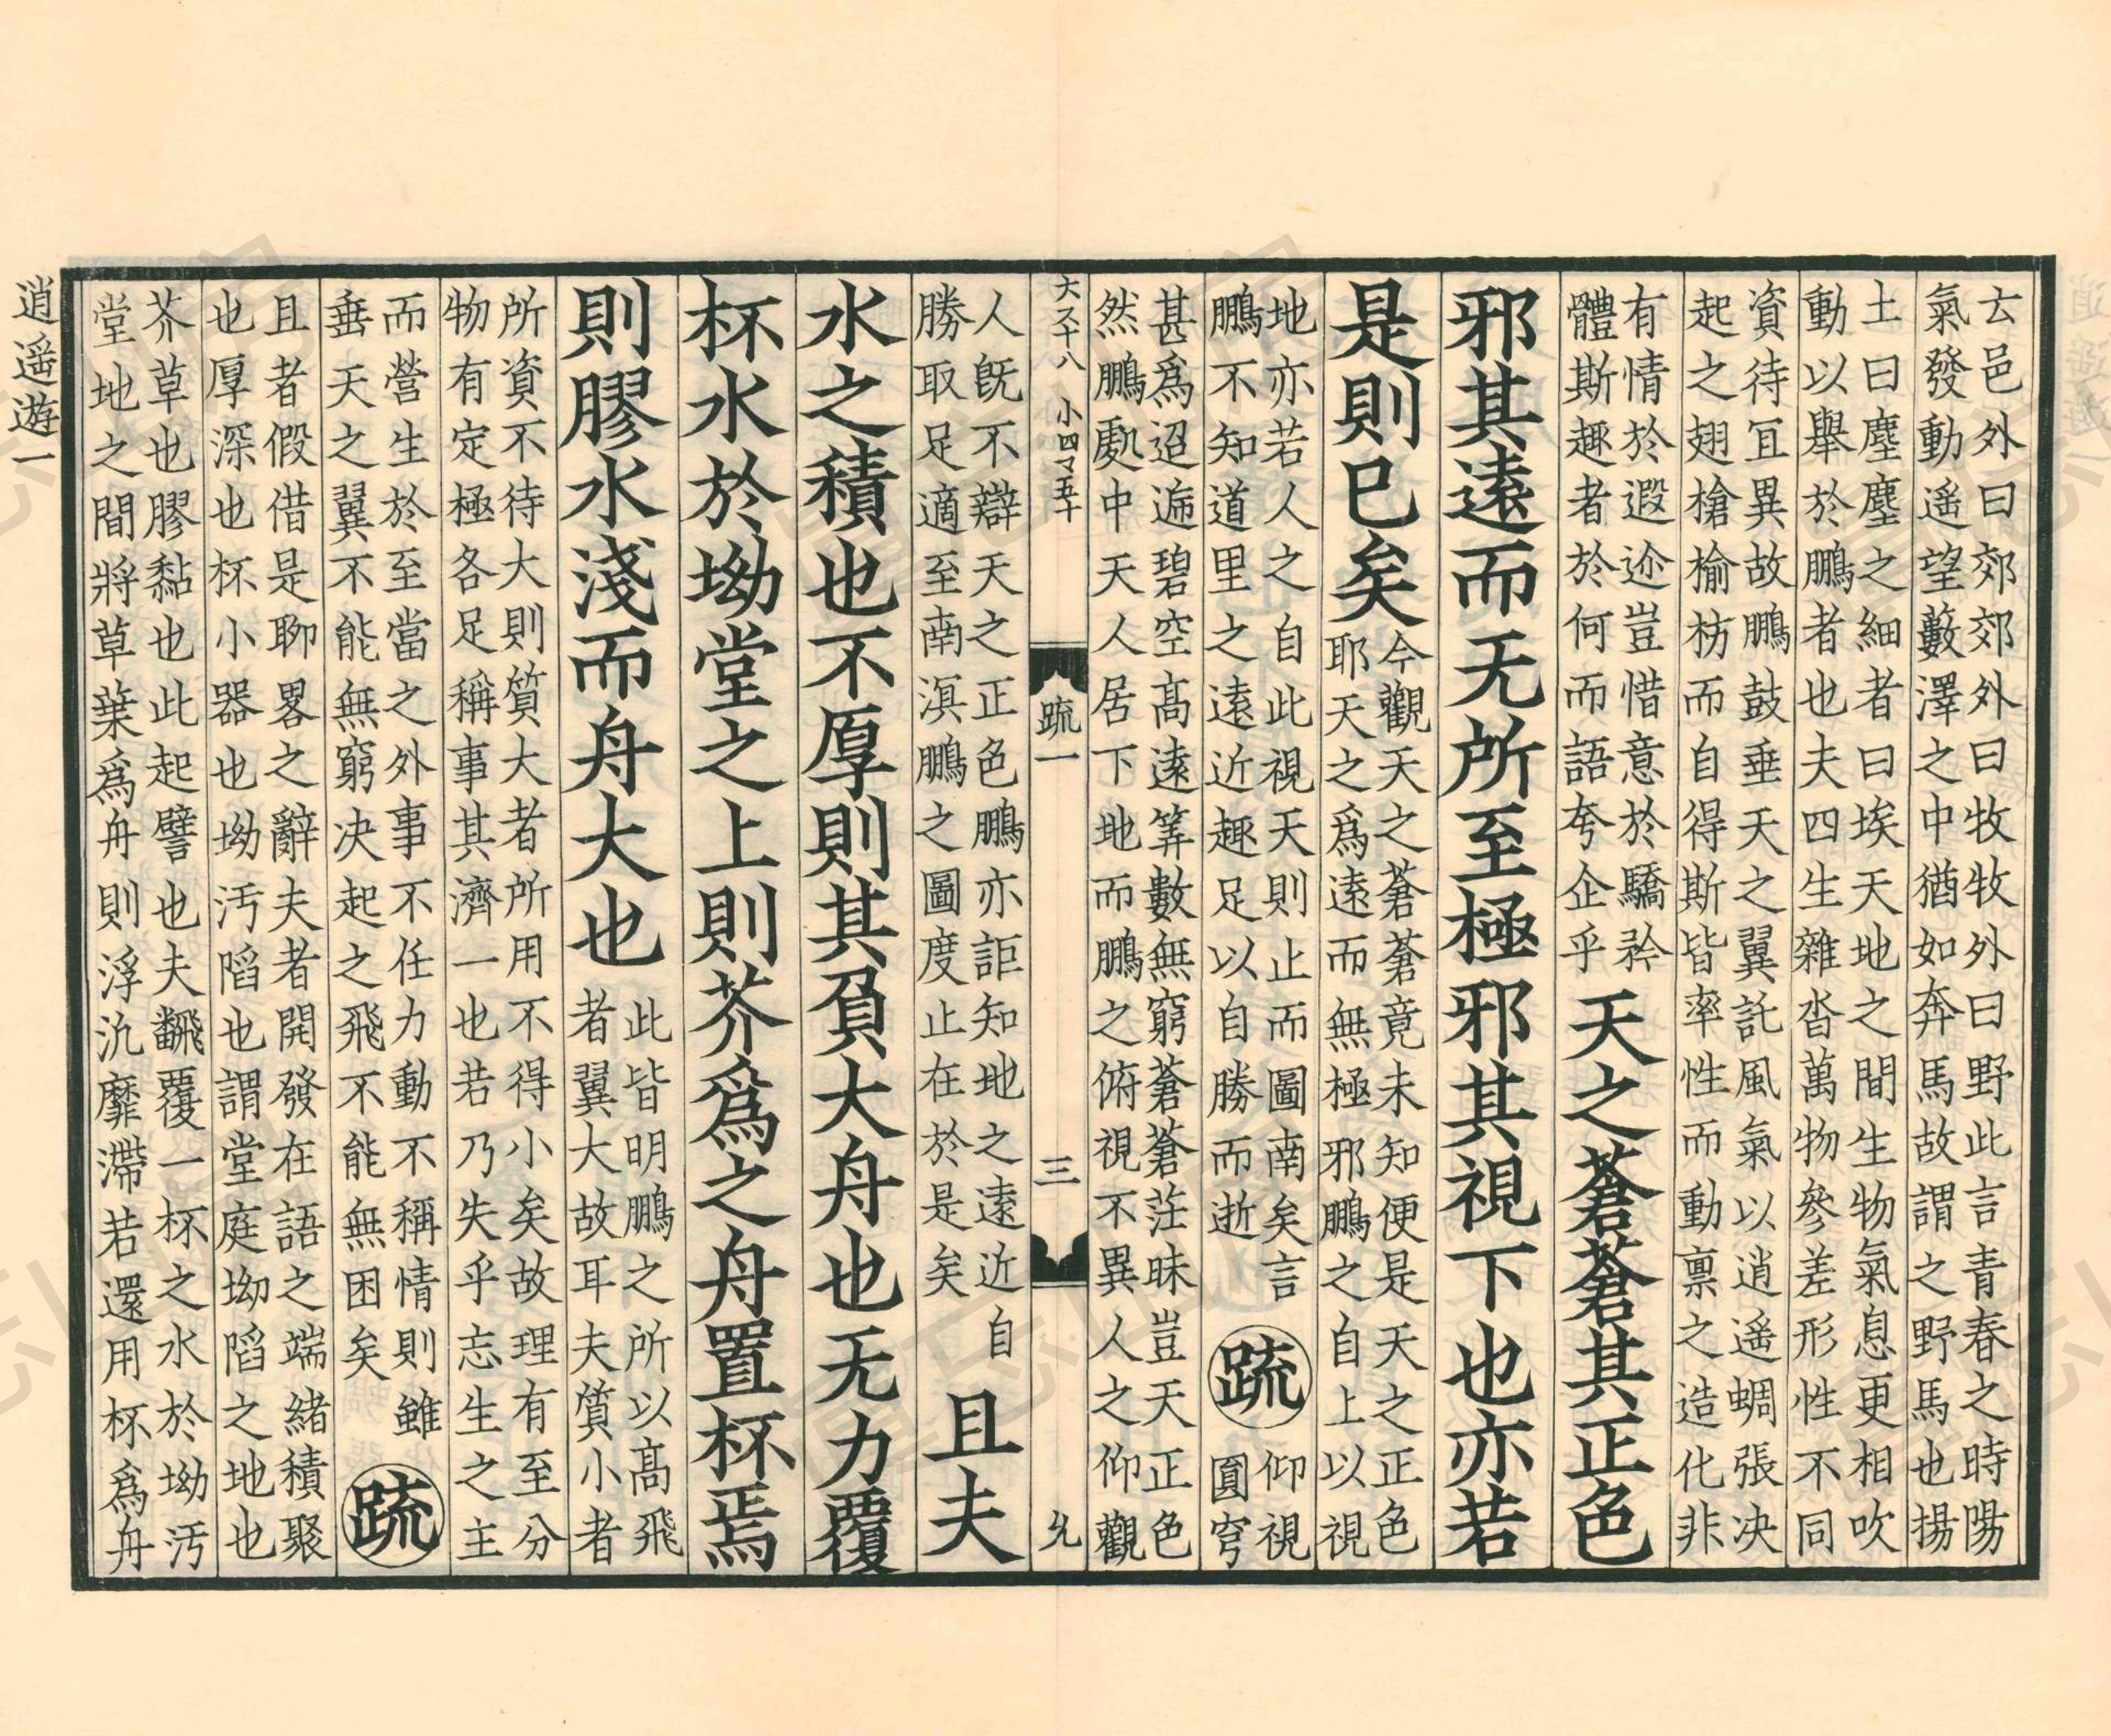 云邑外曰郊郊外曰牧牧外曰野此言青春之時陽
氣發動遥望藪澤之中猶如奔馬故謂之野馬也揚
土曰塵塵之細者曰埃天地之間生物氣息更相吹
動以舉於鵬者也夫四生雜沓萬物參差形性不同
資待冝異故鵬鼓垂天之翼託風氣以逍遥蜩張决
起之翅槍榆枋而自得斯皆率性而動稟之造化非
有情於遐迩豈惜意於驕矜
體斯趣者於何而語夸企乎
天之蒼蒼其正色
邪其遠而无所至極邪其視下也亦若
是則已矣
今觀天之蒼蒼竟未知便是天之正色
耶天之爲遠而無極邪鵬之自上以視
地亦若人之自此視天則止而圖南矣言
鵬不知道里之遠近趣足以自勝而逝
疏
仰視
圓穹
甚爲迢遞碧空髙遠筭數無窮蒼蒼茫昧豈天正色
然鵬處中天人居下地而鵬之俯視不異人之仰觀
大六十八 小四マ五十
疏一
三
人旣不辯天之正色鵬亦詎知地之遠近自
勝取足適至南溟鵬之圖度止在於是矣
且夫
水之積也不厚則其負大舟也无力覆
杯水於坳堂之上則芥爲之舟置杯焉
則膠水淺而舟大也
此皆明鵬之所以髙飛
者翼大故耳夫質小者
所資不待大則質大者所用不得小矣故理有至分
物有定極各足稱事其濟一也若乃失乎忘生之主
而營生於至當之外事不任力動不稱情則雖
垂天之翼不能無窮决起之飛不能無困矣
疏
且者假借是聊畧之辭夫者開發在語之端緒積聚
也厚深也杯小器也坳汚陷也謂堂庭坳陷之地也
芥草也膠黏也此起譬也夫飜覆一杯之水於坳汚
堂地之間將草葉爲舟則浮汎靡滯若還用杯爲舟
逍遥遊一